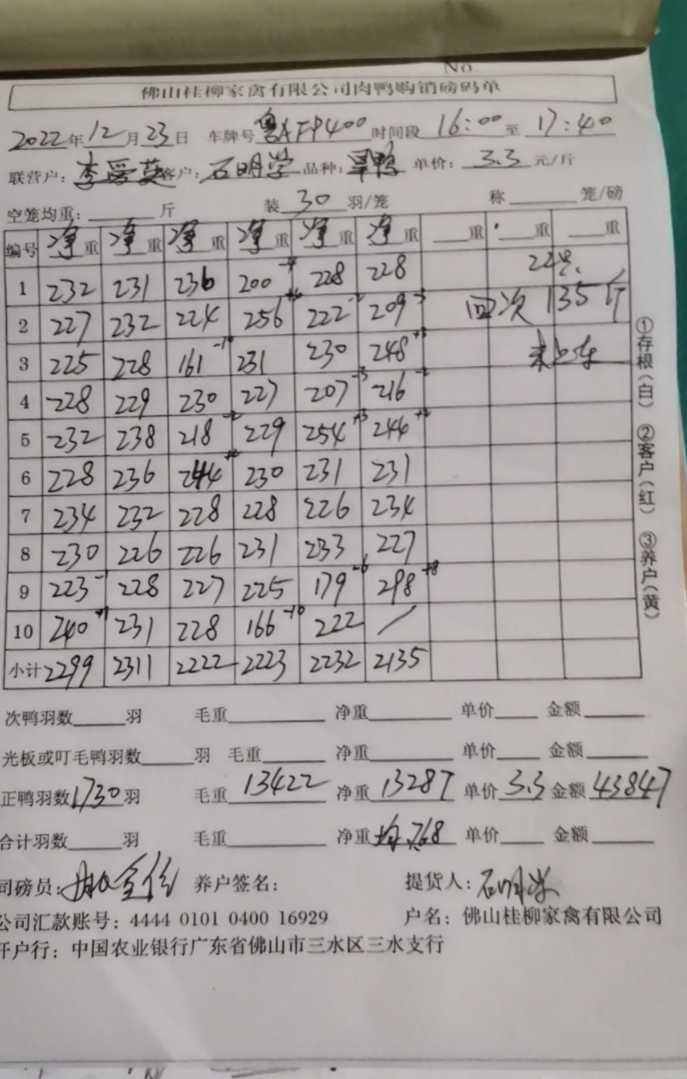 No
佛山桂柳家禽有限公司肉鸭购销磅码单
2022年12月23日 车牌号 粤AFP400 时间段 16:00 至 17:40
联营户: 李爱英 客户: 石明学 品种: 旱鸭 单价: 3.3 元/斤
空笼均重: 斤 装 30 羽/笼 称 笼/磅
编号 净重 净重 净重 净重 净重 净重 重 重 重
1 232 231 236 200 228 228
2 227 232 224 256 222 209 四次 135斤
3 225 228 161 -10 231 230 248 未上车
4 228 229 230 227 207 216
5 232 238 218 229 254 244
6 228 236 244 230 231 231
7 234 232 228 228 226 234
8 230 226 226 231 233 227
9 223 -1 228 227 225 179 -6 298 +8
10 240 +1 231 228 166 -10 222 /
小计 2299 2311 2222 2223 2232 2135
①存根(白) ②客户(红) ③养户(黄)
次鸭羽数 羽 毛重 净重 单价 金额
光板或叮毛鸭羽数 羽 毛重 净重 单价 金额
正鸭羽数 1730 羽 毛重 13422 净重 13287 单价 3.3 金额 43847
合计羽数 羽 毛重 净重 均7.68 单价 金额
司磅员: 养户签名: 提货人: 石明学
公司汇款账号: 4444 0101 0400 16929 户名: 佛山桂柳家禽有限公司
开户行: 中国农业银行广东省佛山市三水区三水支行